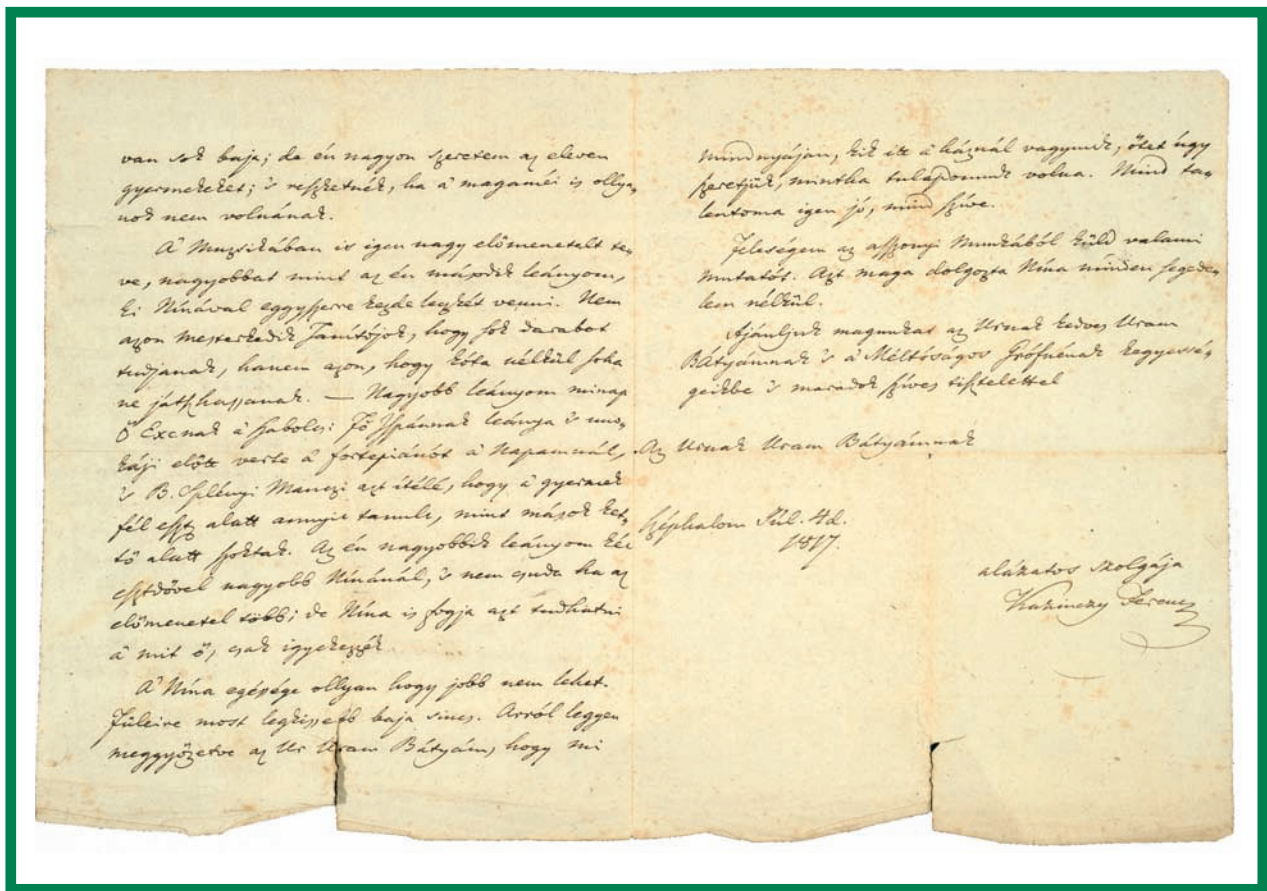 van sok baja; de én nagyon szeretem az eleven
gyermekeket; 's reszketnék, ha a' magaméi is ollya-
nok nem volnának.
A' Muzsikában is igen nagy előmenetelt te-
ve, nagyobbat mint az én második leányom,
ki Nínával eggyszerre kezde leczkét venni. Nem
azon mesterkedik Tanítójok, hogy sok darabot
tudjanak, hanem azon, hogy kóta nélkül soha
ne játszhassanak. — Nagyobb leányom minap
Ő Excnak a' Szabolcsi Fő Ispánnak leánya 's uno-
káji előtt verte a' fortepiánót a' Napamnál,
's B. Splényi Manczi azt ítélé, hogy a' gyermek
fél eszt alatt annyit tanult, mint mások ket-
tő alatt szoktak. Az én nagyobbik leányom két
esztdővel nagyobb Nínánál, 's nem csuda ha az
előmenetel több; de Nína is fogja azt tudhatni
a' mit ő, csak igyekezzék.
A' Nína egésége ollyan hogy jobb nem lehet.
Füleire most legkissebb baja sincs. Arról legyen
meggyőzetve az Ur Uram Bátyám, hogy mi
mindnyájan, kik itt a' háznál vagyunk, őtet úgy
szeretjük, mintha tulajdonunk volna. Mind ta-
lentoma igen jó, mind szíve.
Feleségem az asszonyi Munkából küld valami
mutatót. Azt maga dolgozta Nína minden segede-
lem nélkül.
Ajánljuk magunkat az Urnak kedves Uram
Bátyámnak 's a' Méltóságos Grófnénak kegyessé-
geikbe 's maradok szíves tisztelettel
Az Urnak Uram Bátyámnak
Széphalom Júl. 4d.
1817.
alázatos szolgája
Kazinczy Ferencz